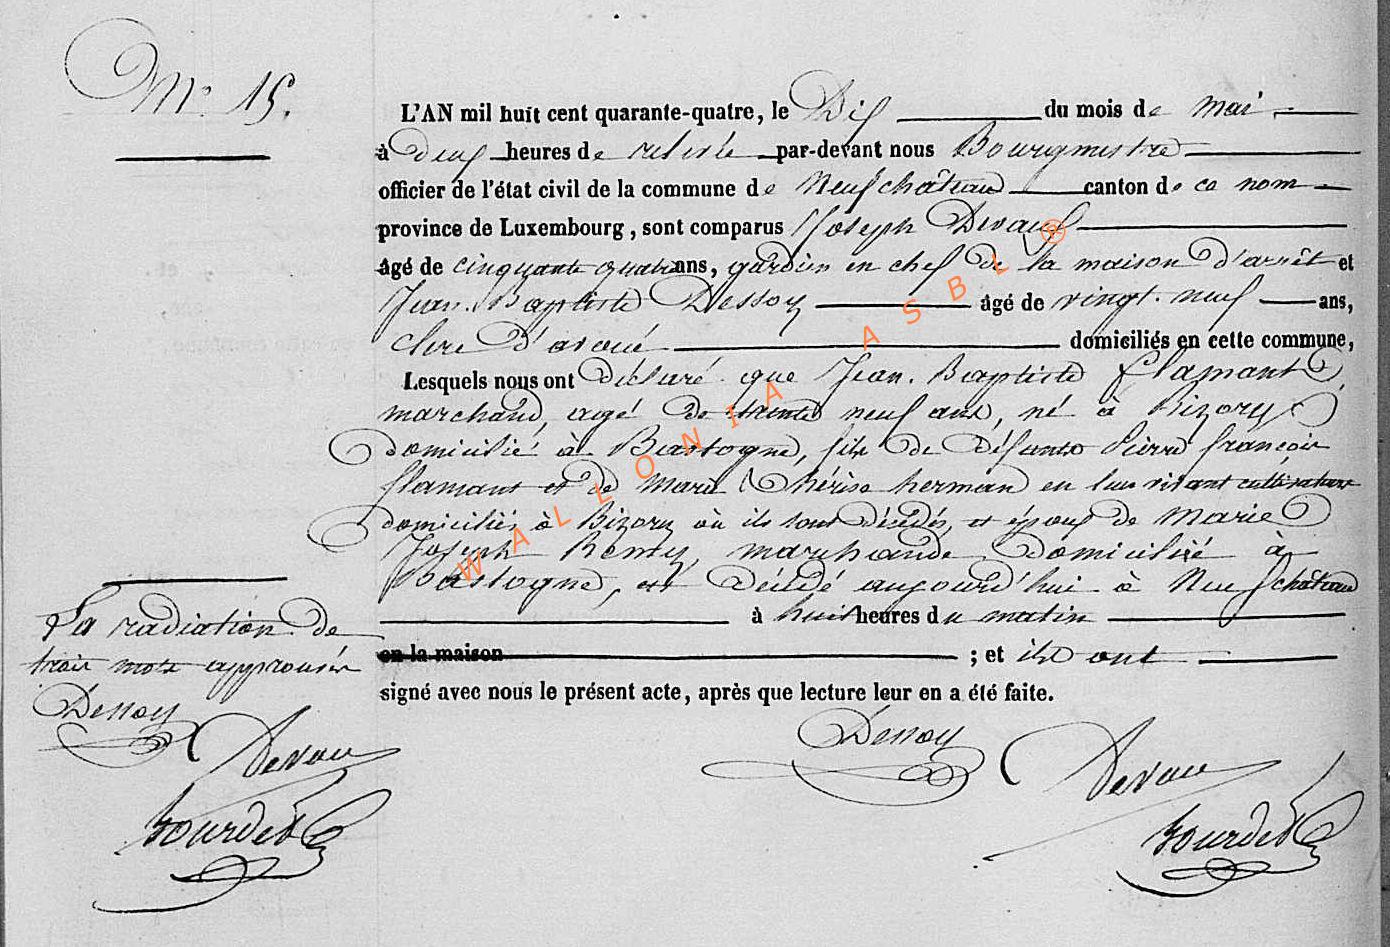 N° 15.
L'AN mil huit cent quarante-quatre, le Dix du mois de mai
à deux heures de relevée par-devant nous Bourgmestre
officier de l'état civil de la commune de Neufchâteau canton de ce nom
province de Luxembourg, sont comparus Joseph Devaux
âgé de cinquante quatre ans, gardien en chef de la maison d'arrêt et
Jean-Baptiste Dessoy âgé de vingt-neuf ans,
clerc d'avoué domiciliés en cette commune,
Lesquels nous ont déclaré que Jean-Baptiste flamant
marchand, agé de trente neuf ans, né à Bizory
domicilié à Bastogne, fils de défunts Pierre françois
flamant et de Marie Thérèse herman en leur vivant cultivateurs
domiciliés à Bizory où ils sont décédés, et époux de Marie
Joseph Remy, marchande domiciliée à
Bastogne, est décédé aujourd'hui à Neufchâteau
à huit heures du matin
en la maison ; et ils ont
signé avec nous le présent acte, après que lecture leur en a été faite.
Dessoy Devau
Bourdet
La radiation de
trois mots approuvée
Dessoy
Devau
Bourdet
WALLONIA ASBL ®